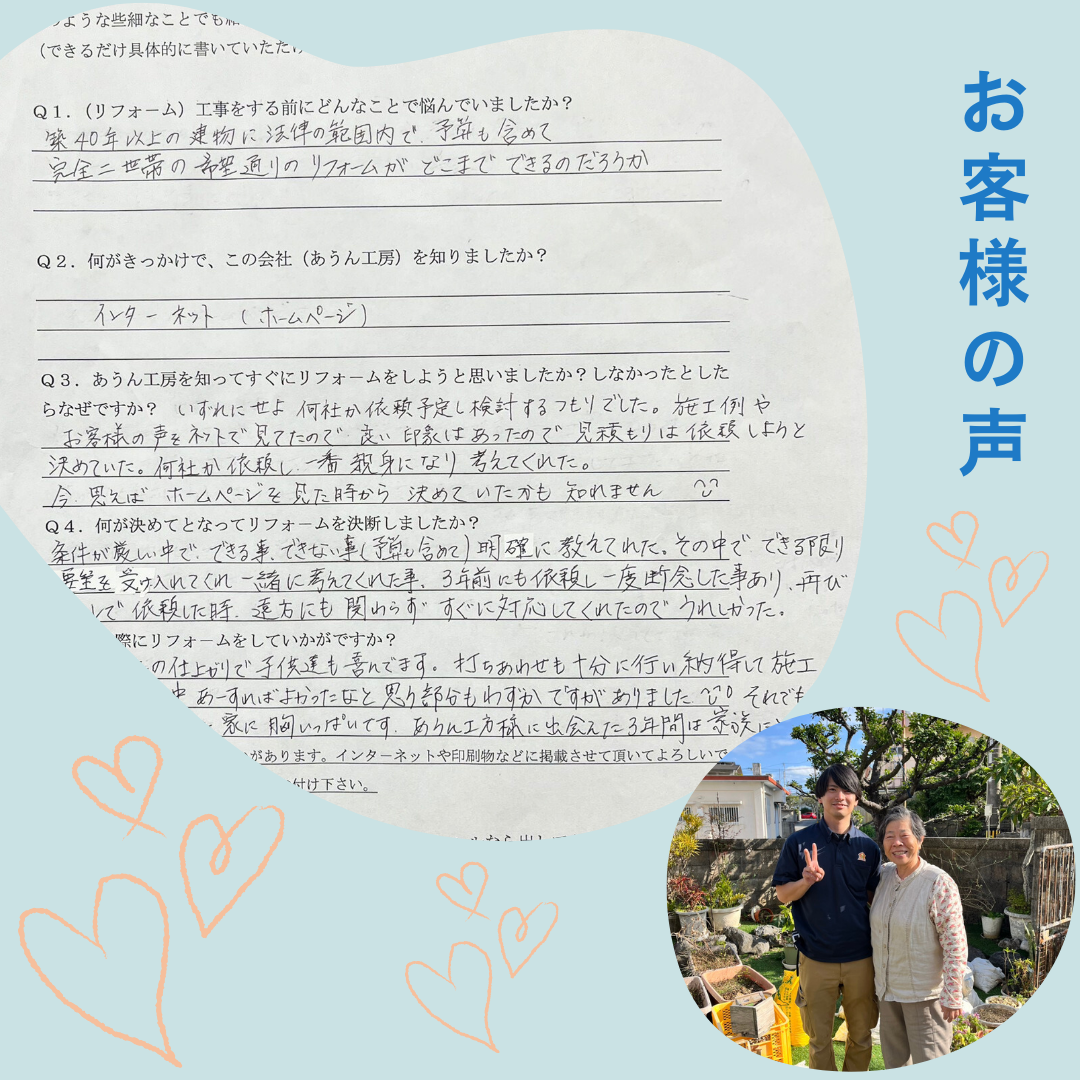 お客様の声
ような些細なことでも
（できるだけ具体的に書いていただけ
Q1．（リフォーム）工事をする前にどんなことで悩んでいましたか？
築40年以上の建物に法律の範囲内で、予算も含めて
完全二世帯の希望通りのリフォームがどこまでできるのだろうか
Q2．何がきっかけで、この会社（あうん工房）を知りましたか？
インターネット（ホームページ）
Q3．あうん工房を知ってすぐにリフォームをしようと思いましたか？しなかったとした
らなぜですか？ いずれにせよ何社か依頼予定し検討するつもりでした。施工例や
お客様の声をネットで見てたので、良い印象はあったので見積もりは依頼しようと
決めていた。何社か依頼し、一番親身になり考えてくれた。
今、思えばホームページを見た時から決めていたかも知れません
Q4．何が決めてとなってリフォームを決断しましたか？
条件が厳しい中で、できる事、できない事（予算も含めて）明確に教えてれた。その中で、できる限り
要望を受け入れてくれ一緒に考えてくれた事、3年前にも依頼し一度断念した事あり、再び
で依頼した時、遠方にも関わらずすぐに対応してくれたのでうれしかった。
際にリフォームをしていかがですか？
の仕上がりで子供達も喜んでます。打ちあわせも十分に行い納得して施工
中あーすればよかったなと思う部分もわずかですがありました それでも
家に胸いっぱいです。あうん工房様に出会えた3年間は家族に
があります。インターネットや印刷物などに掲載させて頂いてよろしいで
付け下さい。